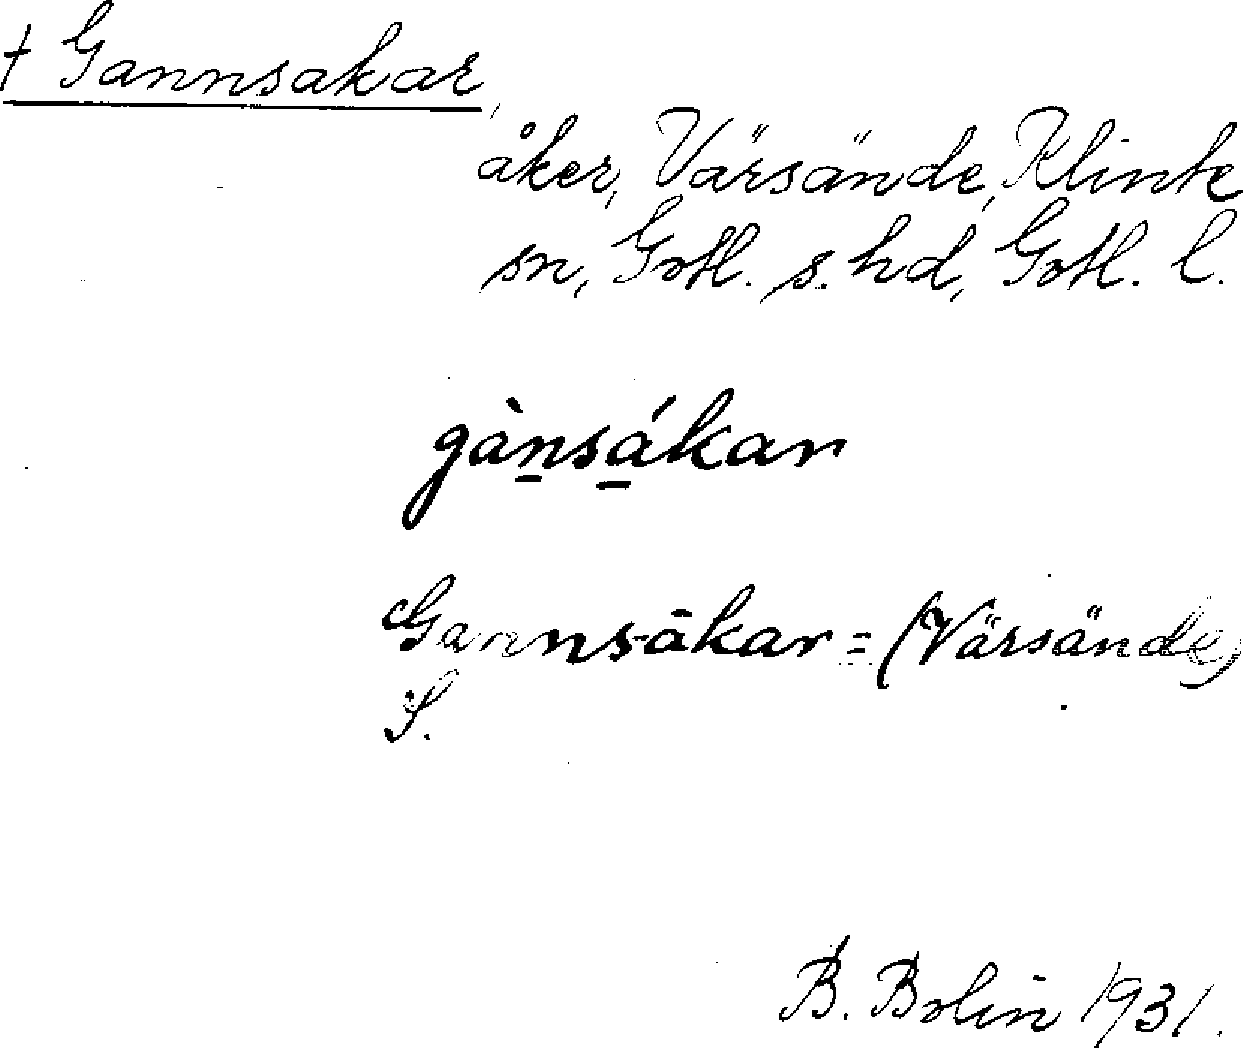 † Gannsakar,
åker, Värsände, Klinte
sn, Gotl. s. hd, Gotl. l.
gànsákar
Ganns-ākar = (Värsände)
S.
B. Bolin 1931.